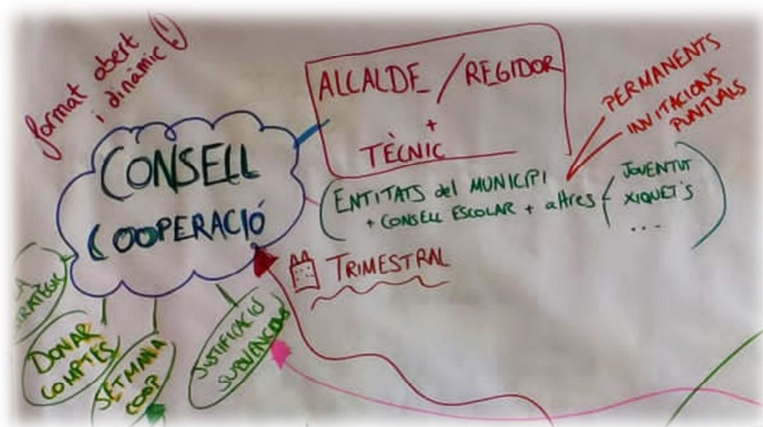 format obert
i dinàmic
CONSELL
COOPERACIÓ
ALCALDE / REGIDOR
+
TÈCNIC
PERMANENTS
INVITACIONS
PUNTUALS
ENTITATS del MUNICIPI
+ CONSELL ESCOLAR + altres
JOVENTUT
XIQUET'S
...
TRIMESTRAL
DONAR
COMPTES
SETMANA
COOP
JUSTIFICACIÓ
SUBVENCIONS